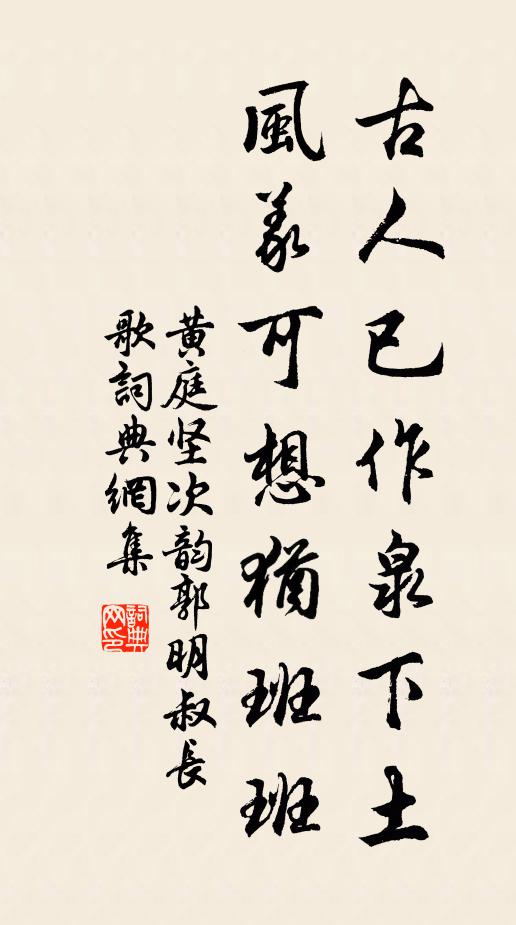 古人已作泉下土
風義可想猶班班
黄庭坚次韵郭明叔長
歌詞典網集
詞典
网印